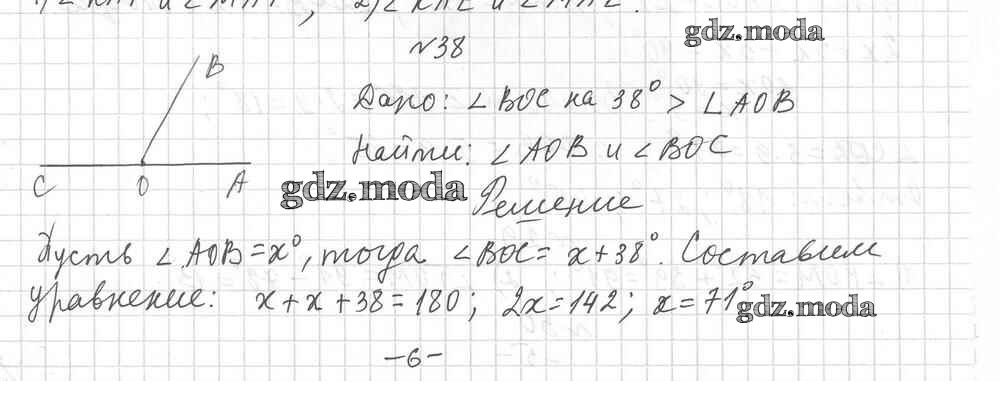 №38
gdz.moda
B
Дано: ∠BOC на 38° > ∠AOB
Найти: ∠AOB и ∠BOC
C O A
gdz.moda
Решение
Пусть ∠AOB = x°, тогда ∠BOC = x + 38°. Составим
уравнение: x + x + 38 = 180; 2x = 142; x = 71°
gdz.moda
-6-